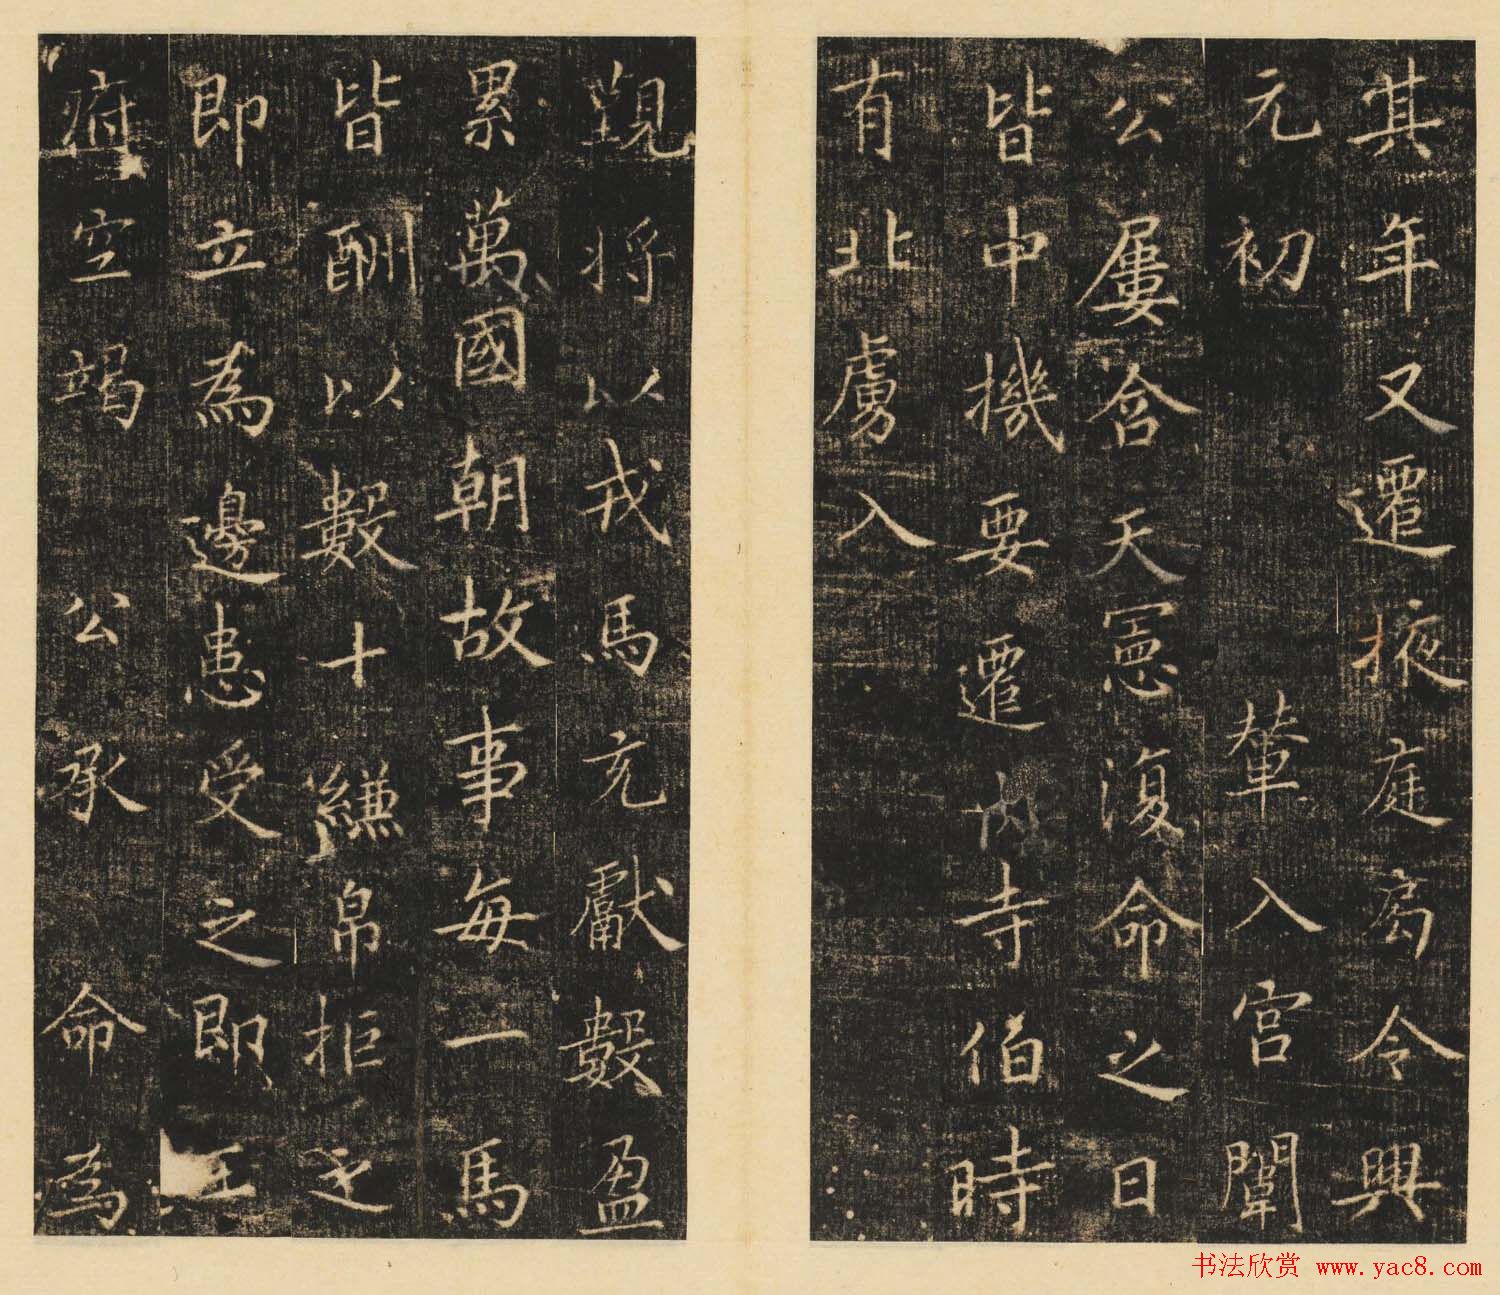 其年又遷掖庭局令興
元初　輦入宮闈
公屢含天憲復命之日
皆中機要遷内寺伯時
有北虜入
覲將以戎馬充獻數盈
累萬國朝故事每一馬
皆酬以數十縑帛拒之
即立為邊患受之即王
府空竭　公承　命為
书法欣赏 www.yac8.com